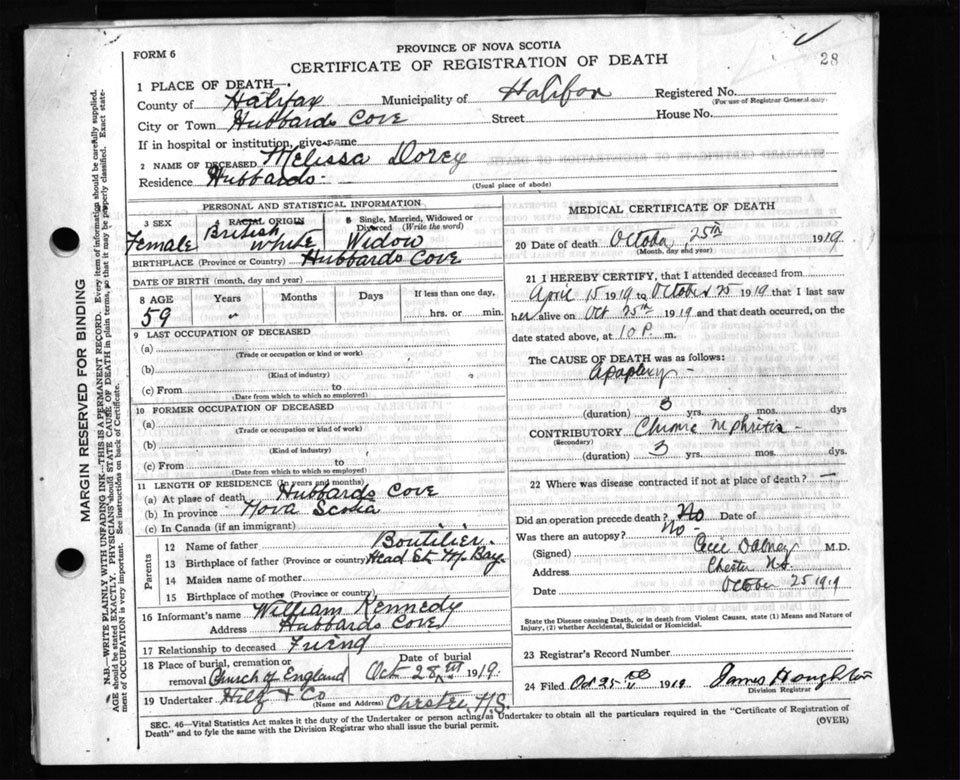 PROVINCE OF NOVA SCOTIA
FORM 6
CERTIFICATE OF REGISTRATION OF DEATH
28
1 PLACE OF DEATH
County of Halifax Municipality of Halifax Registered No.
(For use of Registrar General only)
City or Town Hubbards Cove Street House No.
If in hospital or institution, give name
2 NAME OF DECEASED Melissa Dorey
Residence Hubbards
(Usual place of abode)
PERSONAL AND STATISTICAL INFORMATION
3 SEX Female
4 RACIAL ORIGIN British White
5 Single, Married, Widowed or Divorced (Write the word) Widow
BIRTHPLACE (Province or Country) Hubbards Cove
DATE OF BIRTH (month, day and year)
8 AGE Years Months Days If less than one day,
59 " hrs. or min.
9 LAST OCCUPATION OF DECEASED
(a)
(Trade or occupation or kind or work)
(b)
(Kind of industry)
(c) From to
(Date from which to which so employed)
10 FORMER OCCUPATION OF DECEASED
(a)
(Trade or occupation or kind of work)
(b)
(Kind of industry)
(c) From to
(Date from which to which so employed)
11 LENGTH OF RESIDENCE (in years and months)
(a) At place of death Hubbards Cove
(b) In province Nova Scotia
(c) In Canada (if an immigrant)
Parents
12 Name of father Boutilier
13 Birthplace of father (Province or country) Head St. M. Bay
14 Maiden name of mother
15 Birthplace of mother (Province or country)
16 Informant's name William Kennedy
Address Hubbards Cove
17 Relationship to deceased Friend
18 Place of burial, cremation or Date of burial
removal Church of England Oct 28th 1919
19 Undertaker Hilz & Co (Name and Address) Chester N.S.
MEDICAL CERTIFICATE OF DEATH
20 Date of death October 25th 1919
(Month, day and year)
21 I HEREBY CERTIFY, that I attended deceased from
April 15 1919 to October 25 1919 that I last saw
her alive on Oct 25th 1919 and that death occurred, on the
date stated above, at 10 P. m.
The CAUSE OF DEATH was as follows:
Apoplexy
(duration) 3 yrs. mos. dys
CONTRIBUTORY Chronic nephritis
(Secondary)
(duration) 3 yrs. mos. dys
22 Where was disease contracted if not at place of death?
Did an operation precede death? No Date of
Was there an autopsy? No
(Signed) Cecil M.D.
Address Chester N.S.
Date October 25 1919
State the Disease causing Death, or in death from Violent Causes, state (1) Means and Nature of
Injury, (2) whether Accidental, Suicidal or Homicidal.
23 Registrar's Record Number
24 Filed Oct 25 1919 James Houghton
Division Registrar
SEC. 46—Vital Statistics Act makes it the duty of the Undertaker or person acting as Undertaker to obtain all the particulars required in the "Certificate of Registration of
Death" and to fyle the same with the Division Registrar who shall issue the burial permit.
(OVER)
MARGIN RESERVED FOR BINDING
N.B.—WRITE PLAINLY WITH UNFADING INK—THIS IS A PERMANENT RECORD. Every item of information should be carefully supplied.
AGE should be stated EXACTLY. PHYSICIANS should STATE CAUSE OF DEATH in plain terms, so that it may be properly classified. Exact state-
ment of OCCUPATION is very important. See instructions on back of Certificate.